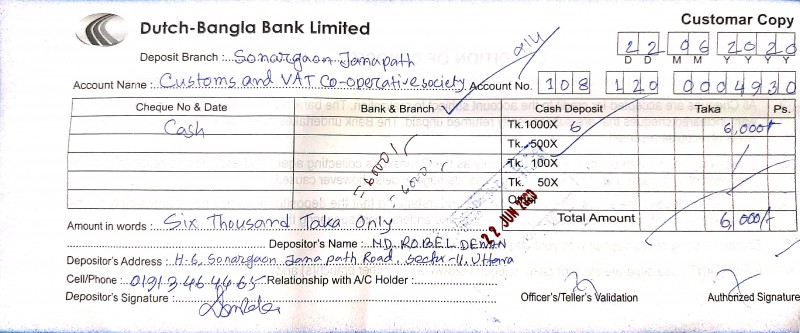 Dutch-Bangla Bank Limited
Customar Copy
Deposit Branch : Sonargaon Janapath
22 06 2020
D D M M Y Y Y Y
Account Name : Customs and VAT Co-operative society Account No. 108 120 0004930
Cheque No & Date Bank & Branch Cash Deposit Taka Ps.
Cash Tk.1000X 6 6,000/-
Tk. 500X
Tk. 100X
Tk. 50X
= 6000/-
= 6000/-
22 JUN 2020
Total Amount 6,000/-
Amount in words : Six Thousand Taka Only
Depositor's Name : MD. ROBEL DEWAN
Depositor's Address : H-6, Sonargaon Janapath Road, Sector-11, Uttara
Cell/Phone : 01913464465 Relationship with A/C Holder :
Depositor's Signature :
Officer's/Teller's Validation Authorized Signature